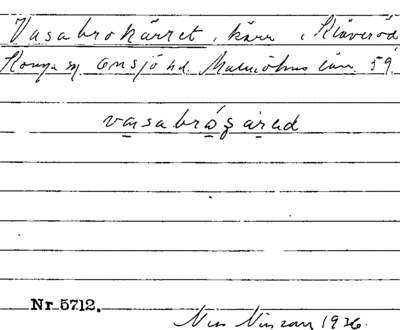 Vasabrokärret, kärr, Klåveröd
Konga sn Onsjö hd. Malmöhus län. 59.
vasabrószárəd
Nr 5712.
Nils Nilsson 1936.